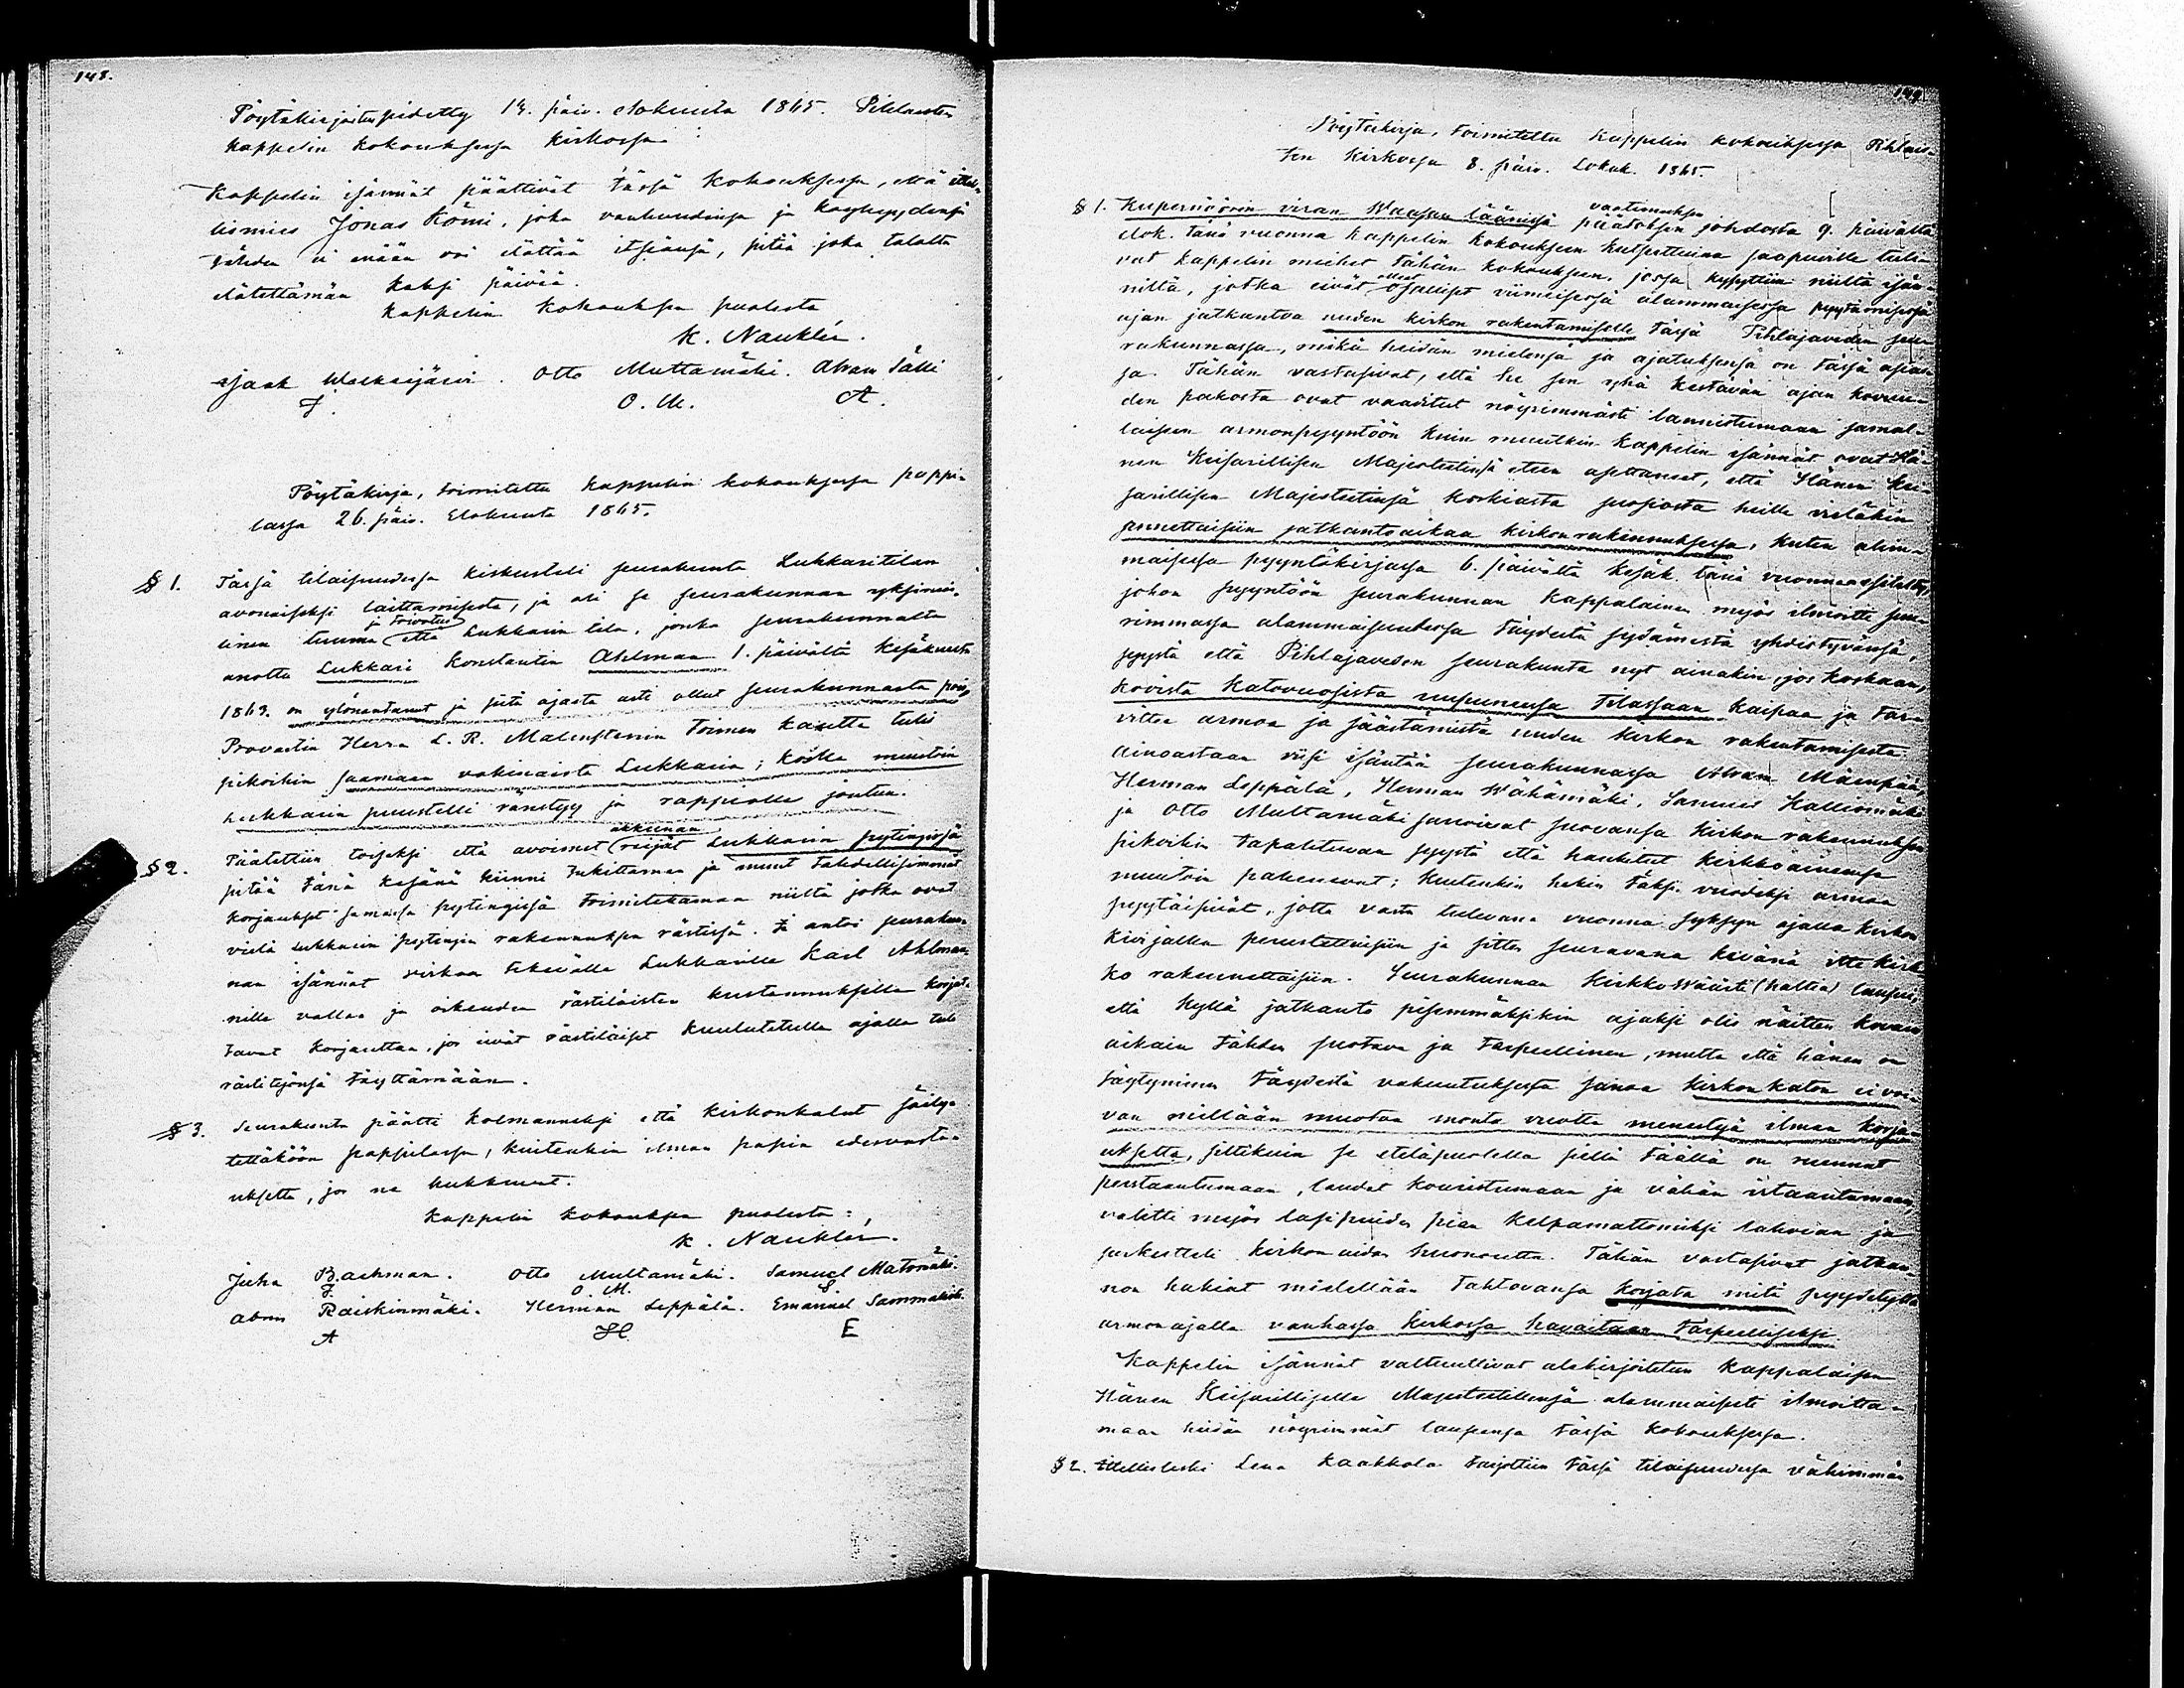 148.
Pöytäkirja pidetty 13. päiv. elokuuta 1865. Pihlaveten
kappelin kokouksessa kirkossa:
Kappelin isännät päättivät tässä kokouksessa, että ittel-
lismies Jonas Kömi, joka vanhuudensa ja
tähden ei enään voi elättää itsiänsä, pitää joka talolta
elätettämän kaksi päivää.
Kappelin kokouksen puolesta
K. Nauklér.
Isaak Walkeejärvi. Otto Multamäki. Abram Sälli
I. O. M. A.
Pöytäkirja, toimitettu kappelin kokouksessa pappi-
lassa 26. päiv. Elokuuta 1865.
§ 1. Tässä tilaisuudessa keskusteli seurakunta Lukkaritilan
avonaiseksi laittamisesta, ja oli se seurakunnan yksimie-
linen tuuma ja toivotus että Lukkarin tila, jonka seurakunnalta
anottu Lukkari Konstantin Ahlman 1. päivältä Kesäkuuta
1863. on ylönantanut ja siitä ajasta asti ollut seurakunnasta pois,
Provastin Herra L. R. Malmsteinin toimen kautta tulis
pikoihin saamaan vakinaista Lukkaria; koska muutoin
Lukkarin puustelli ränstyy ja rappiolle joutuu.
§ 2. Päätettiin toiseksi että avoimet akkunan reijät Lukkarin pytingissä
pitää tänä kesänä kiinni tukittaman ja muut tahdellisimmat
korjaukset samassa pytingissä toimitettaman niiltä jotka ovat
vielä Lukkarin pytingin rakennuksen rästissä. Ja antoi seurakun-
nan isännät virkaa tekevälle Lukkarille Karl Ahlman-
nille vallan ja oikeuden rästiläisten kustannuksilla korjat-
tavat korjauttaa, jos eivät rästiläiset kuulutetulla ajalla tule
rästityönsä täyttämään.
§ 3. Seurakunta päätti kolmanneksi että kirkonkalut säily-
tettäköön pappilassa, kuitenkin ilman papin edesvasta-
uksetta, jos ne hukkuvat.
Kappelin kokouksen puolesta:
K. Nauklér.
Juha Backman. Otto Multamäki. Samuel Matomäki.
J. O. M. S.
Abram Raiskinmäki. Herman Leppälä. Emanuel Sammalisto.
A H E
149
Pöytäkirja, toimitettu kappelin kokouksessa Pihlawe-
ten kirkossa 8. päiv. Lokak. 1865.
§ 1. Kupernöörin viran Waasan läänissä vaatimuksen päätöksen johdosta 9. päivältä
elok. tänä vuonna kappelin kokoukseen kutsuttuina saapuville tuli-
vat kappelin miehet tähän kokoukseen, jossa kysyttiin niiltä isän-
niltä, jotka eivät olleet osalliset viimeisessä alammaisessa pyytämisessä
ajan jatkantoa uuden kirkon rakentamiselle tässä Pihlajaveden seu-
rakunnassa, mikä heidän mielensä ja ajatuksensä on tässä asias-
sa. Tähän vastasivat, että he sen yhä kestävän ajan kovuu-
den pakosta ovat vaaditut nöyrimmästi lannistumaan samal-
laisen armonpyyntöön kuin muutkin kappelin isännät ovat Hä-
nen Keisarillisen Majesteetinsä eteen asettaneet, että Hänen Kei-
sarillisen Majesteetinsä korkiasta suosiosta heille vieläkin
annettaisiin jatkantoaikaa kirkon rakennuksessa, kuten alam-
maisessa pyyntökirjassa 6. päivältä kesäk. tänä vuonna esitetty,
johon pyyntöön seurakunnan Kappalainen myös ilmoitti suu-
rimmassa alammaisuudessa täydestä sydämestä yhdistyvänsä,
syystä että Pihlajaveden seurakunta nyt ainakin, jos koskaan,
kovista katovuosista uupuneessa tilassaan kaipaa ja tar-
vittee armoa ja säästämistä uuden kirkon rakentamisesta.
Ainoastaan viisi isäntää seurakunnassa Abram Mäenpää,
Herman Leppälä, Herman Wähämäki, Samuel Kalliomäki
ja Otto Multamäki sanoivat suovansa kirkon rakennuksen
pikoihin tapahtuvan syystä että hankitut kirkkoaineensa
muutoin pahenevat; kuitenkin hekin täksi vuodeksi armoa
pyytäisivät, jotta vasta tulevana vuonna syksyn ajalla kirkon
kivijalka perustettaisiin ja sitten seuravana kevänä itte kirk-
ko rakennettaisiin. Seurakunnan Kirkko Wäärti (haltia) lausui,
että kyllä jatkanto pisemmäksikin ajaksi olis näitten kovain
aikain tähden suotava ja tarpeellinen, mutta että hänen on
täytyminen täydestä vakuutuksesta sanoa kirkon katon ei voi-
van millään muotoa monta vuotta menestyä ilman korja-
uksetta, sillä kuin se eteläpuolella siellä täällä on ruennut
, laudat kouristumaan ja vähän irtaantumaan,
valitti myös lasipuiden pian kelpamattomiksi lahovan ja
surkutteli kirkon aidan huonoutta. Tähän vastasivat jatkan-
non hakiat mielellään tahtovansa korjata mitä pyydetyllä
armonajalla vanhassa kirkossa havaitaan tarpeelliseksi.
Kappelin isännät valtuuttivat alakirjoitetun Kappalaisen
Hänen Keisarilliselle Majesteetillensä alammaisesti ilmoitta-
maan heidän nöyrimmät lausensa tässä kokouksessa.
§ 2. Itellisleski Lena Kaakkola tarjottiin tässä tilaisuudessa vähimmän